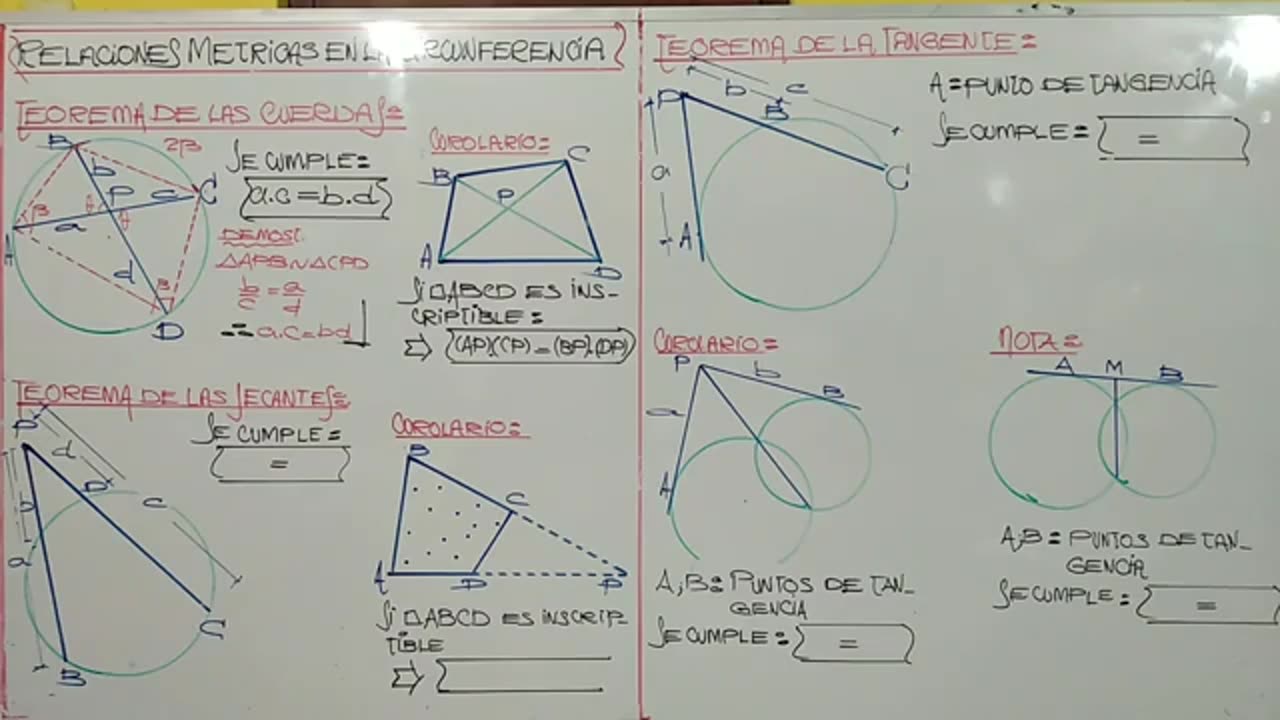 RELACIONES METRICAS EN LA CIRCUNFERENCIA
TEOREMA DE LAS CUERDAS:
B
2β
b
P
c
C
β
θ
θ
a
A
d
β
D
SE CUMPLE:
a.c = b.d
DEMOST.
△APB ~ △CPD
b/c = a/d
∴ a.c = bd
COROLARIO:
B
C
P
A
D
Si □ABCD ES INS-
CRIPTIBLE:
⇒ (AP)(CP) = (BP).(DP)
TEOREMA DE LAS SECANTES:
P
d
D
b
c
a
C
B
SE CUMPLE:
=
COROLARIO:
B
C
A
D
P
Si □ABCD ES INSCRIP-
TIBLE
⇒
TEOREMA DE LA TANGENTE:
P
b
c
B
a
C
A
A = PUNTO DE TANGENCIA
SE CUMPLE:
=
COROLARIO:
P
b
B
a
A
A, B: PUNTOS DE TAN-
GENCIA
SE CUMPLE:
=
NOTA:
A
M
B
A, B: PUNTOS DE TAN-
GENCIA
SE CUMPLE:
=